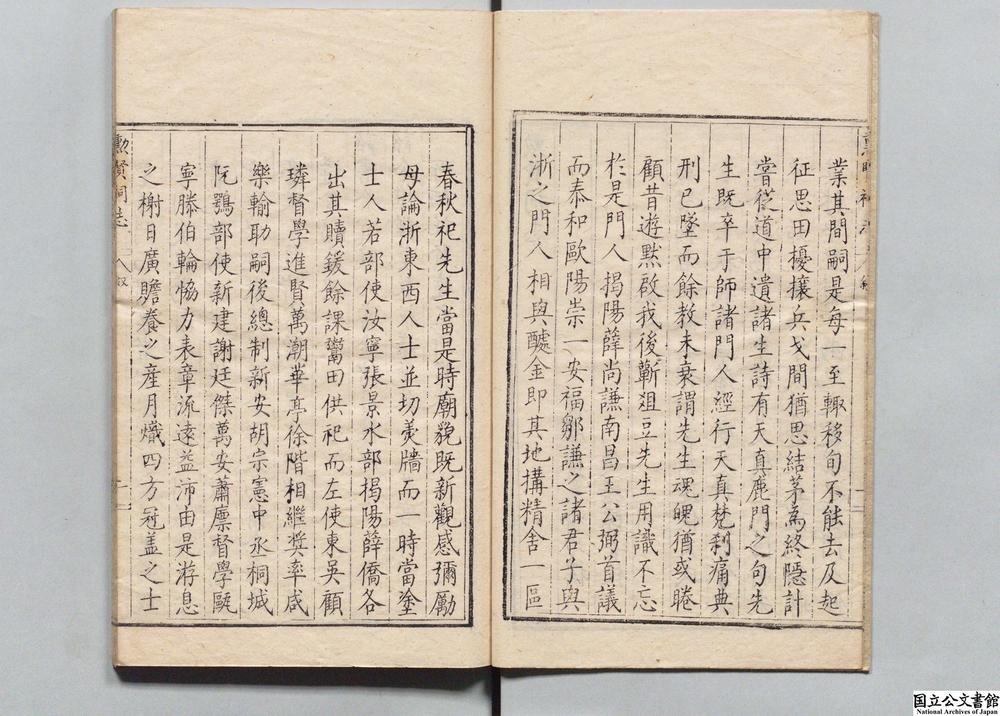 業其間嗣是每一至輙移旬不能去及起
征思田擾攘兵戈間猶思結茅為終隱計
嘗從道中遺諸生詩有天真鹿門之句先
生既卒于師諸門人經行天真梵刹痛典
刑已墜而餘教未衰謂先生魂魄猶或睠
顧昔遊黙啟我後蘄俎豆先生用識不忘
於是門人揭陽薛尚謙南昌王公弼首議
而泰和歐陽崇一安福鄒謙之諸君子與
浙之門人相與醵金即其地搆精舍一區
春秋祀先生當是時廟貌既新觀感彌勵
毋論浙東西人士並切羮牆而一時當塗
士人若部使汝寧張景水部揭陽薛僑各
出其贖鍰餘課鬻田供祀而左使東吳顧
璘督學進賢萬潮華亭徐階相繼奨率咸
樂輸助嗣後總制新安胡宗憲中丞桐城
阮鶚部使新建謝廷傑萬安蕭廩督學甌
寧滕伯輪恊力表章流遠益沛由是游息
之榭日廣贍養之産月熾四方冠盖之士
勲賢祠志
叙
国立公文書館
National Archives of Japan